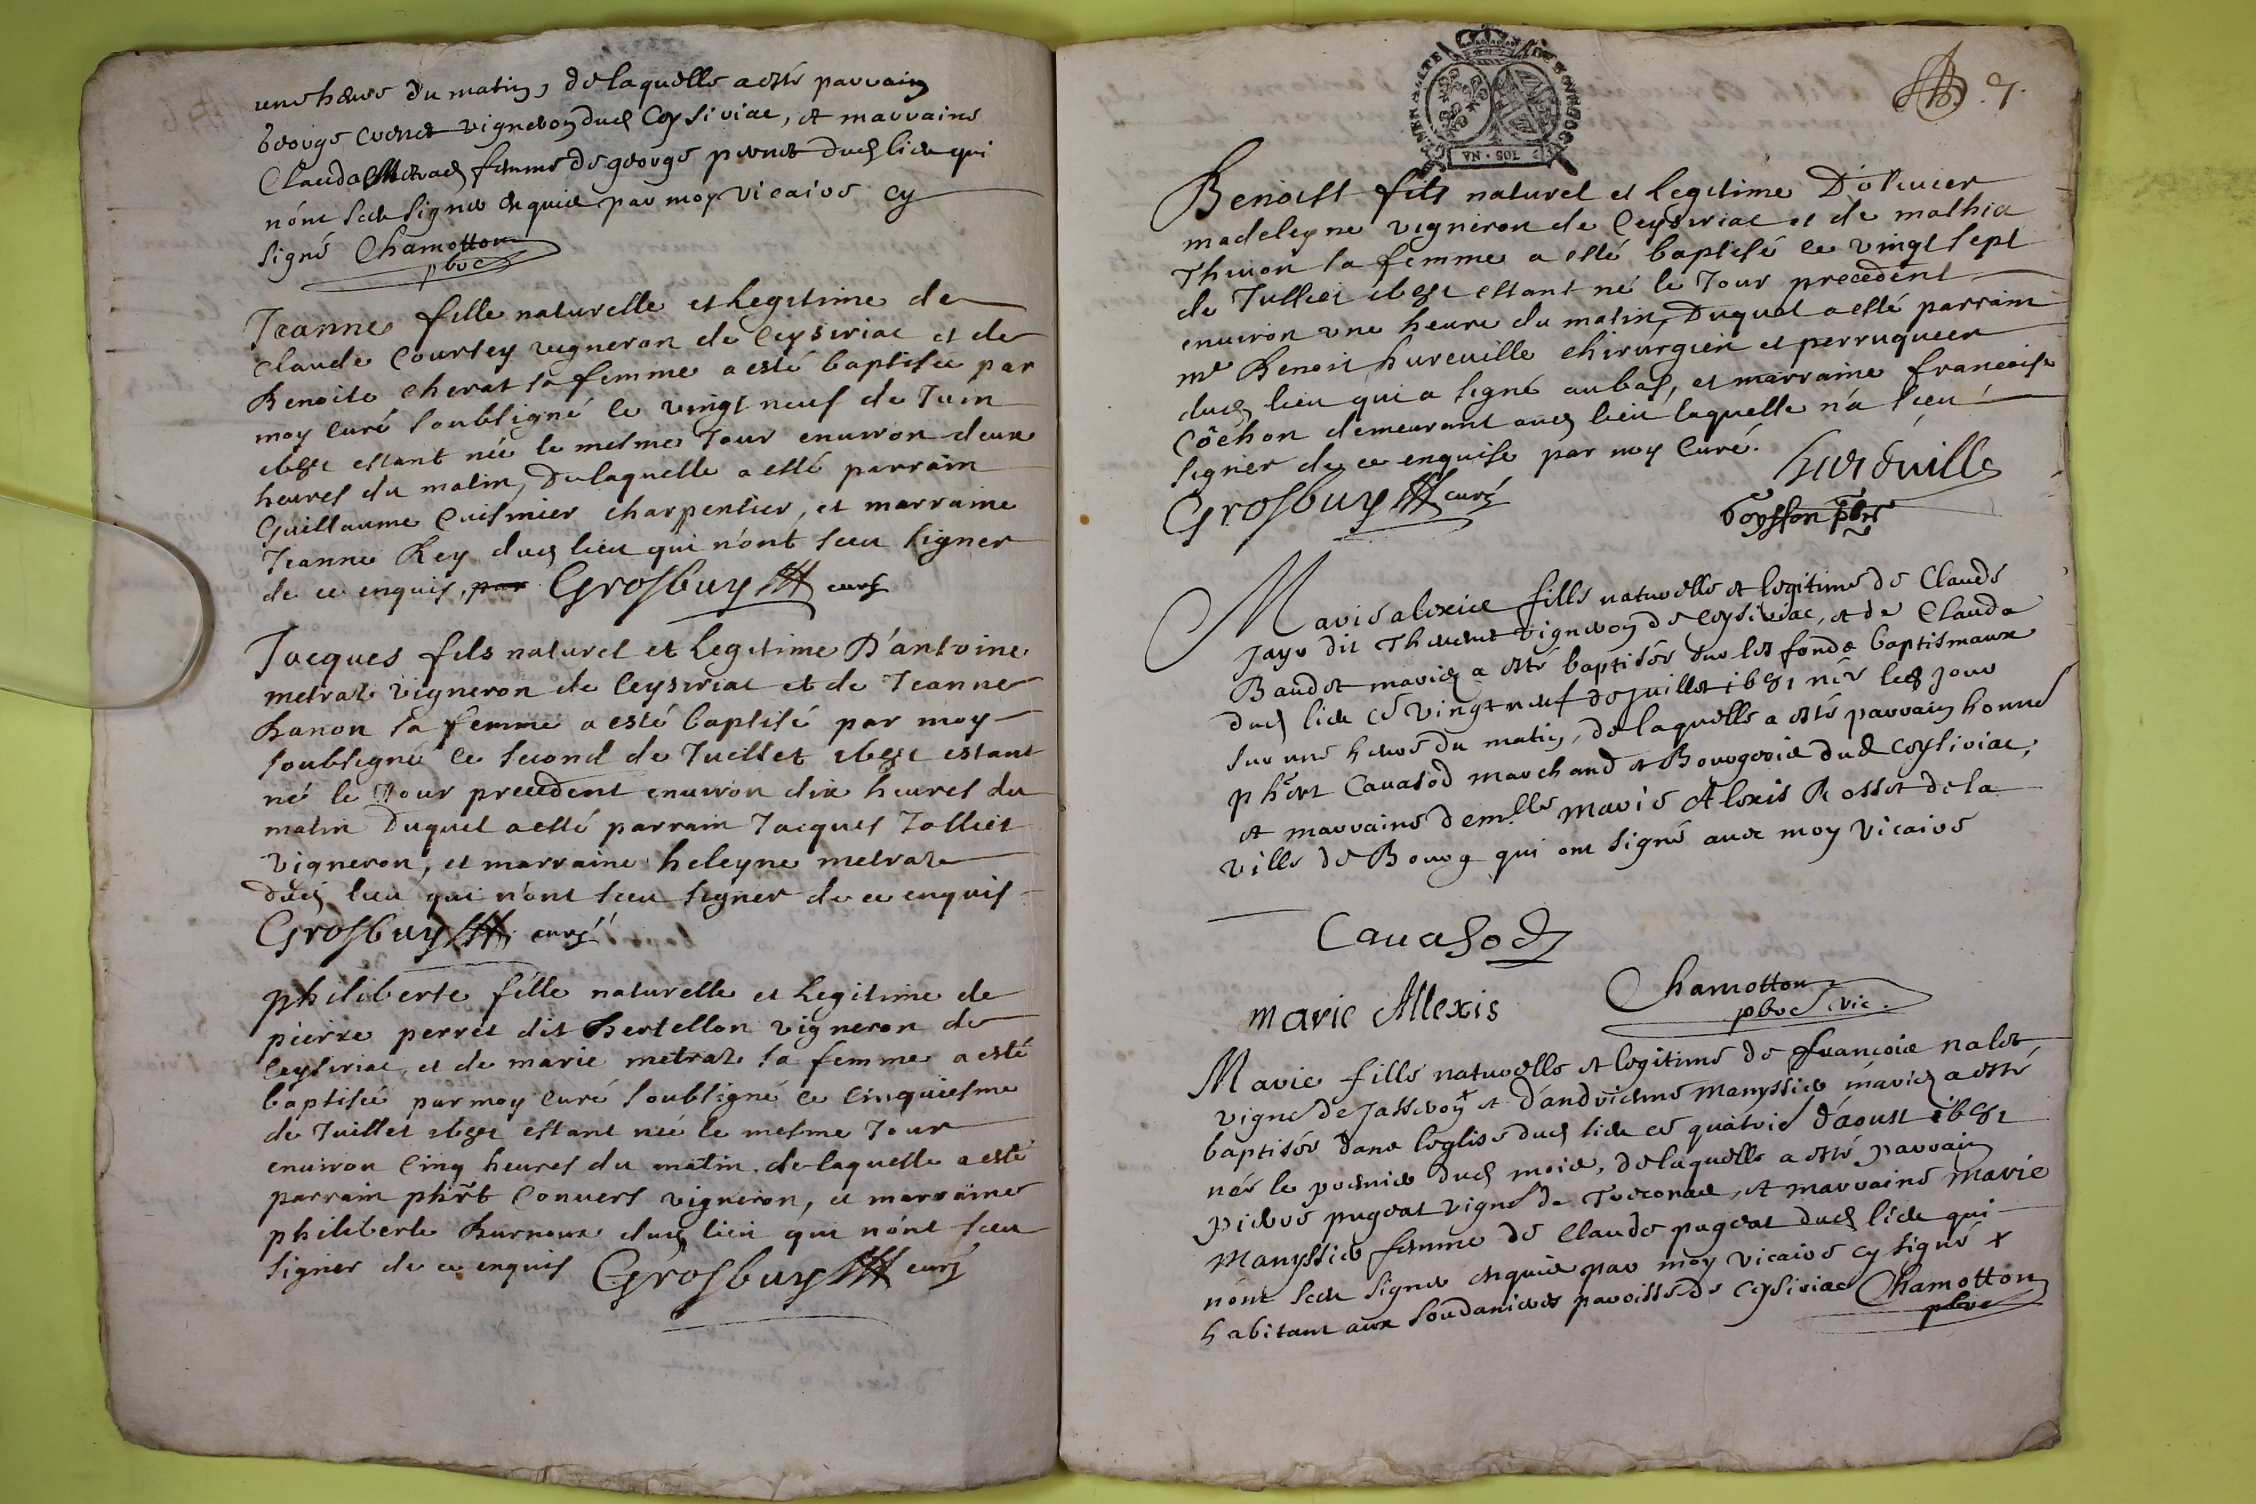 une heure du matin, de laquelle a esté parrain
George vigneron dud Ceysiriac, et marraine
Clauda femme de george dud lieu qui
n'ont sceu signer enquis par moy vicaire cy
signé Chamotton
pbre
Jeanne fille naturelle et legitime de
Claude Courtey vigneron de Ceysiriac et de
Benoite Cherat sa femme a esté baptisée par
moy curé soubsigné ce vingt neuf de Juin
1681 estant née le mesme Jour environ deux
heures du matin, De laquelle a esté parrain
Guillaume Cuisinier charpentier, et marraine
Jeanne Rey dud lieu qui n'ont sceu signer
de ce enquis, par Grosbuy curé
Jacques fils naturel et legitime D'antoine
metraz vigneron de Ceysiriac et de Jeanne
Banon sa femme a esté baptisé par moy
soubsigné ce second de Juillet 1681 estant
né le Jour precedent environ dix heures du
matin Duquel a esté parrain Jacques Jolliet
vigneron, et marraine heleyne metraz
dud lieu qui n'ont sceu signer de ce enquis
Grosbuy curé
philiberte fille naturelle et legitime de
pierre perret dit bertellon vigneron de
Ceysiriac, et de marie metraz sa femme a esté
baptisée par moy curé soubsigné ce cinquiesme
de Juillet 1681 estant née le mesme Jour
environ cinq heures du matin, de laquelle a esté
parrain phbrt Convers vigneron, et marraine
philiberte Burnoux dud lieu qui n'ont sceu
signer de ce enquis Grosbuy curé
GENERALITE DE BOURGOG
VN · SOL
7.
Benoist fils naturel et legitime D'olivier
madeleyne vigneron de Ceysiriac et de mathia
Thevion sa femme a esté baptisé ce vingt sept
de Juillet 1681 estant né le Jour precedent
environ une heure du matin, Duquel a esté parrain
me Benoit hureville chirurgien et perruquier
dud lieu qui a signé au bas, et marraine francoise
Cochon demeurant aud lieu laquelle n'a sceu
signer de ce enquise par moy Curé.
Hureville
Grosbuy curé
Boysson pbre
Marie alexis fille naturelle et legitime de Claude
Jayr dit Thevenet vigneron de Ceysiriac, et de Clauda
Baudet mariés a esté baptisée sur les fonds baptismaux
dud lieu ce vingt neuf de Juillet 1681 née led jour
sur une heure du matin, de laquelle a esté parrain honne
phbrt Cavasod marchand et Bourgeois dud Ceysiriac,
et marraine demlle Marie Alexis Rosset de la
ville de Bourg qui ont signé avec moy vicaire
Cavasod
Marie Allexis
Chamotton
pbre vic.
Marie fille naturelle et legitime de françois nalet
vigne de Jasseron + et d'andrienne Manyssier mariés a esté
baptisée dans l'eglise dud lieu ce quatrie d'aoust 1681
née le premier dud mois, de laquelle a esté parrain
pierre pugeat vigne de Treconas, et marraine Marie
Manyssier femme de Claude pugeat dud lieu qui
n'ont sceu signer enquis par moy vicaire cy signé +
habitant aux soudanieres paroisse de Ceysiriac Chamotton
pbre